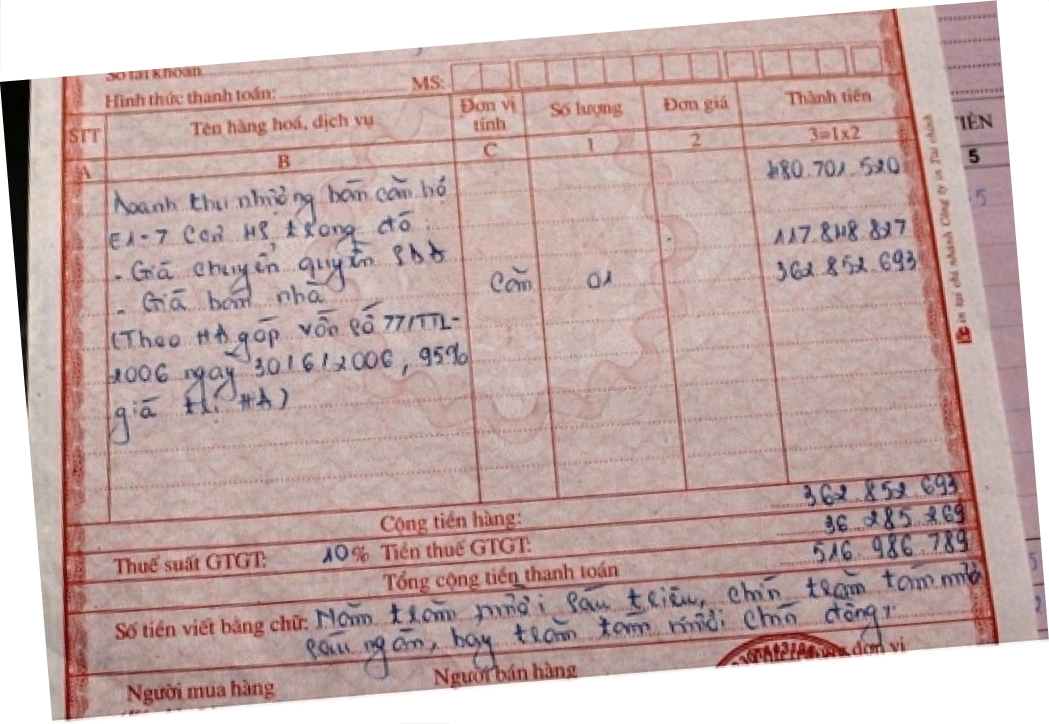 Số tài khoản
Hình thức thanh toán: MS:
STT Tên hàng hoá, dịch vụ Đơn vị tính Số lượng Đơn giá Thành tiền
A B C 1 2 3=1x2
Doanh thu nhượng bán căn hộ 480.701.520
E1-7 CC2 MĐ trong đó
- Giá chuyển quyền SDĐ 117.848.827
- Giá bán nhà Căn 01 362.852.693
(Theo HĐ góp vốn số 77/TTL-
2006 ngày 30/6/2006, 95%
giá trị HĐ)
Cộng tiền hàng: 362.852.693
Thuế suất GTGT: 10% Tiền thuế GTGT: 36.285.269
Tổng cộng tiền thanh toán 516.986.789
Số tiền viết bằng chữ: Năm trăm mười sáu triệu, chín trăm tám mươi
sáu ngàn, bảy trăm tám mươi chín đồng.
Người mua hàng Người bán hàng đơn vị
In tại chi nhánh Công ty in Tài chính
TIỀN
5